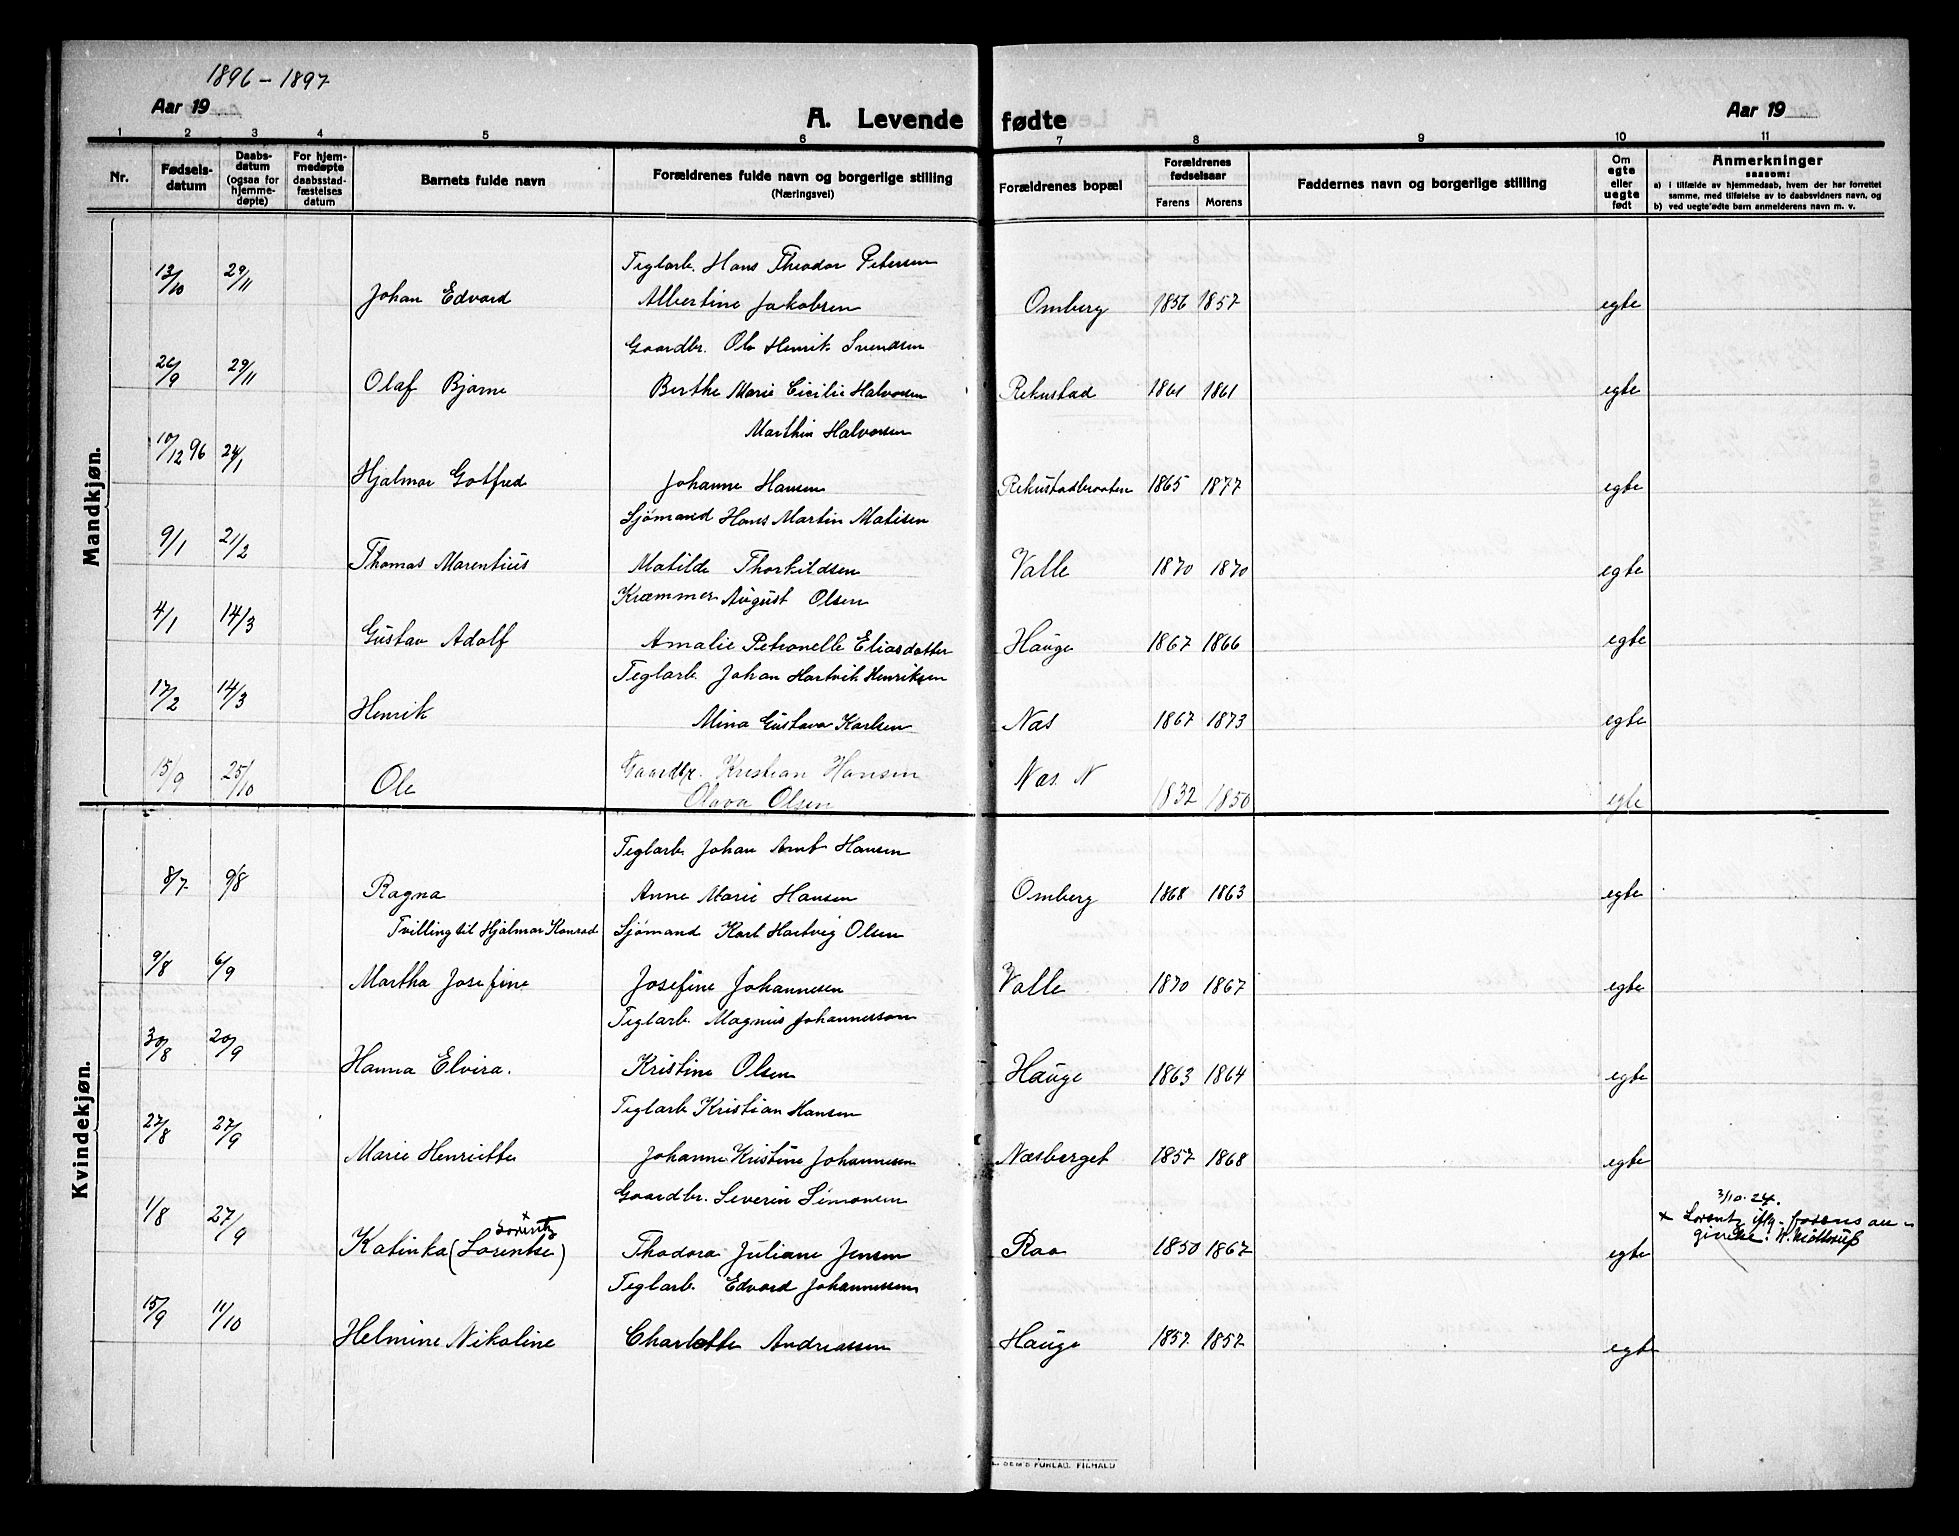 1896 – 1897
Aar 19
A. Levende fødte
Aar 19
1 2 3 4 5 6 7 8 9 10 11
Nr.
Fødsels-
datum
Daabs-
datum
(ogsaa for
hjemme-
døpte)
For hjem-
medøpte
daabsstad-
fæstelses
datum
Barnets fulde navn
Forældrenes fulde navn og borgerlige stilling
(Næringsvei)
Forældrenes bopæl
Forældrenes
fødselsaar
Farens Morens
Faddernes navn og borgerlige stilling
Om
egte
eller
uegte
født
Anmerkninger
saasom:
a) i tilfælde av hjemmedaab, hvem der har forrettet
samme, med tilføielse av to daabsvidners navn, og
b) ved uegte fødte barn anmelderens navn m. v.
Mandkjøn.
Teglarb. Hans Theodor Petersen
13/10 29/11 Johan Edvard Albertine Jakobsen Omberg 1856 1857 egte
Gaardbr. Ole Henrik Svendsen
26/9 29/11 Olaf Bjarne Berthe Marie Cicilie Halvorsen Rekustad 1861 1861 egte
Marthin Halvorsen
10/12 96 24/1 Hjalmar Gotfred Johanne Hansen Rekustadbraaten 1865 1877 egte
Sjømand Hans Martin Matisen
9/1 21/2 Thomas Marentius Matilde Thorkildsen Valle 1870 1870 egte
Kræmmer August Olsen
4/1 14/3 Gustav Adolf Amalie Petronelle Eliasdatter Hauge 1867 1866 egte
Teglarb. Johan Hartvik Henriksen
17/2 14/3 Henrik Mina Gustava Karlsen Næs 1867 1873 egte
15/9 25/10 Ole Gaardbr. Kristian Hansen Næs. N
Olava Olsen 1832 1850 egte
Kvindekjøn.
Teglarb. Johan Arnt Hansen
8/7 9/8 Ragna Anne Marie Hansen Omberg 1868 1863 egte
Tvilling til Hjalmar Konrad Sjømand Karl Hartvig Olsen
9/8 6/9 Martha Josefine Josefine Johannesen Valle 1870 1867 egte
Teglarb. Magnus Johannesson
30/8 20/9 Hanna Elvira. Kristine Olsen Hauge 1863 1864 egte
Teglarb. Kristian Hansen
27/8 27/9 Marie Henriette Johanne Kristine Johannesen Næsberget 1857 1868 egte
Gaardbr. Severin Simonsen
1/8 27/9 x Lorentz
Katinka (Lorentse) Thodora Juliane Jensen Raa 1850 1867 egte
3/10. 24.
x Lorentz iflg. farens an-
givelse.
Teglarb. Edvard Johannessen
15/9 11/10 Helmine Nikoline Charlotte Andreassen Hauge 1857 1857 egte
SEM'S FORLAG. F.HALD